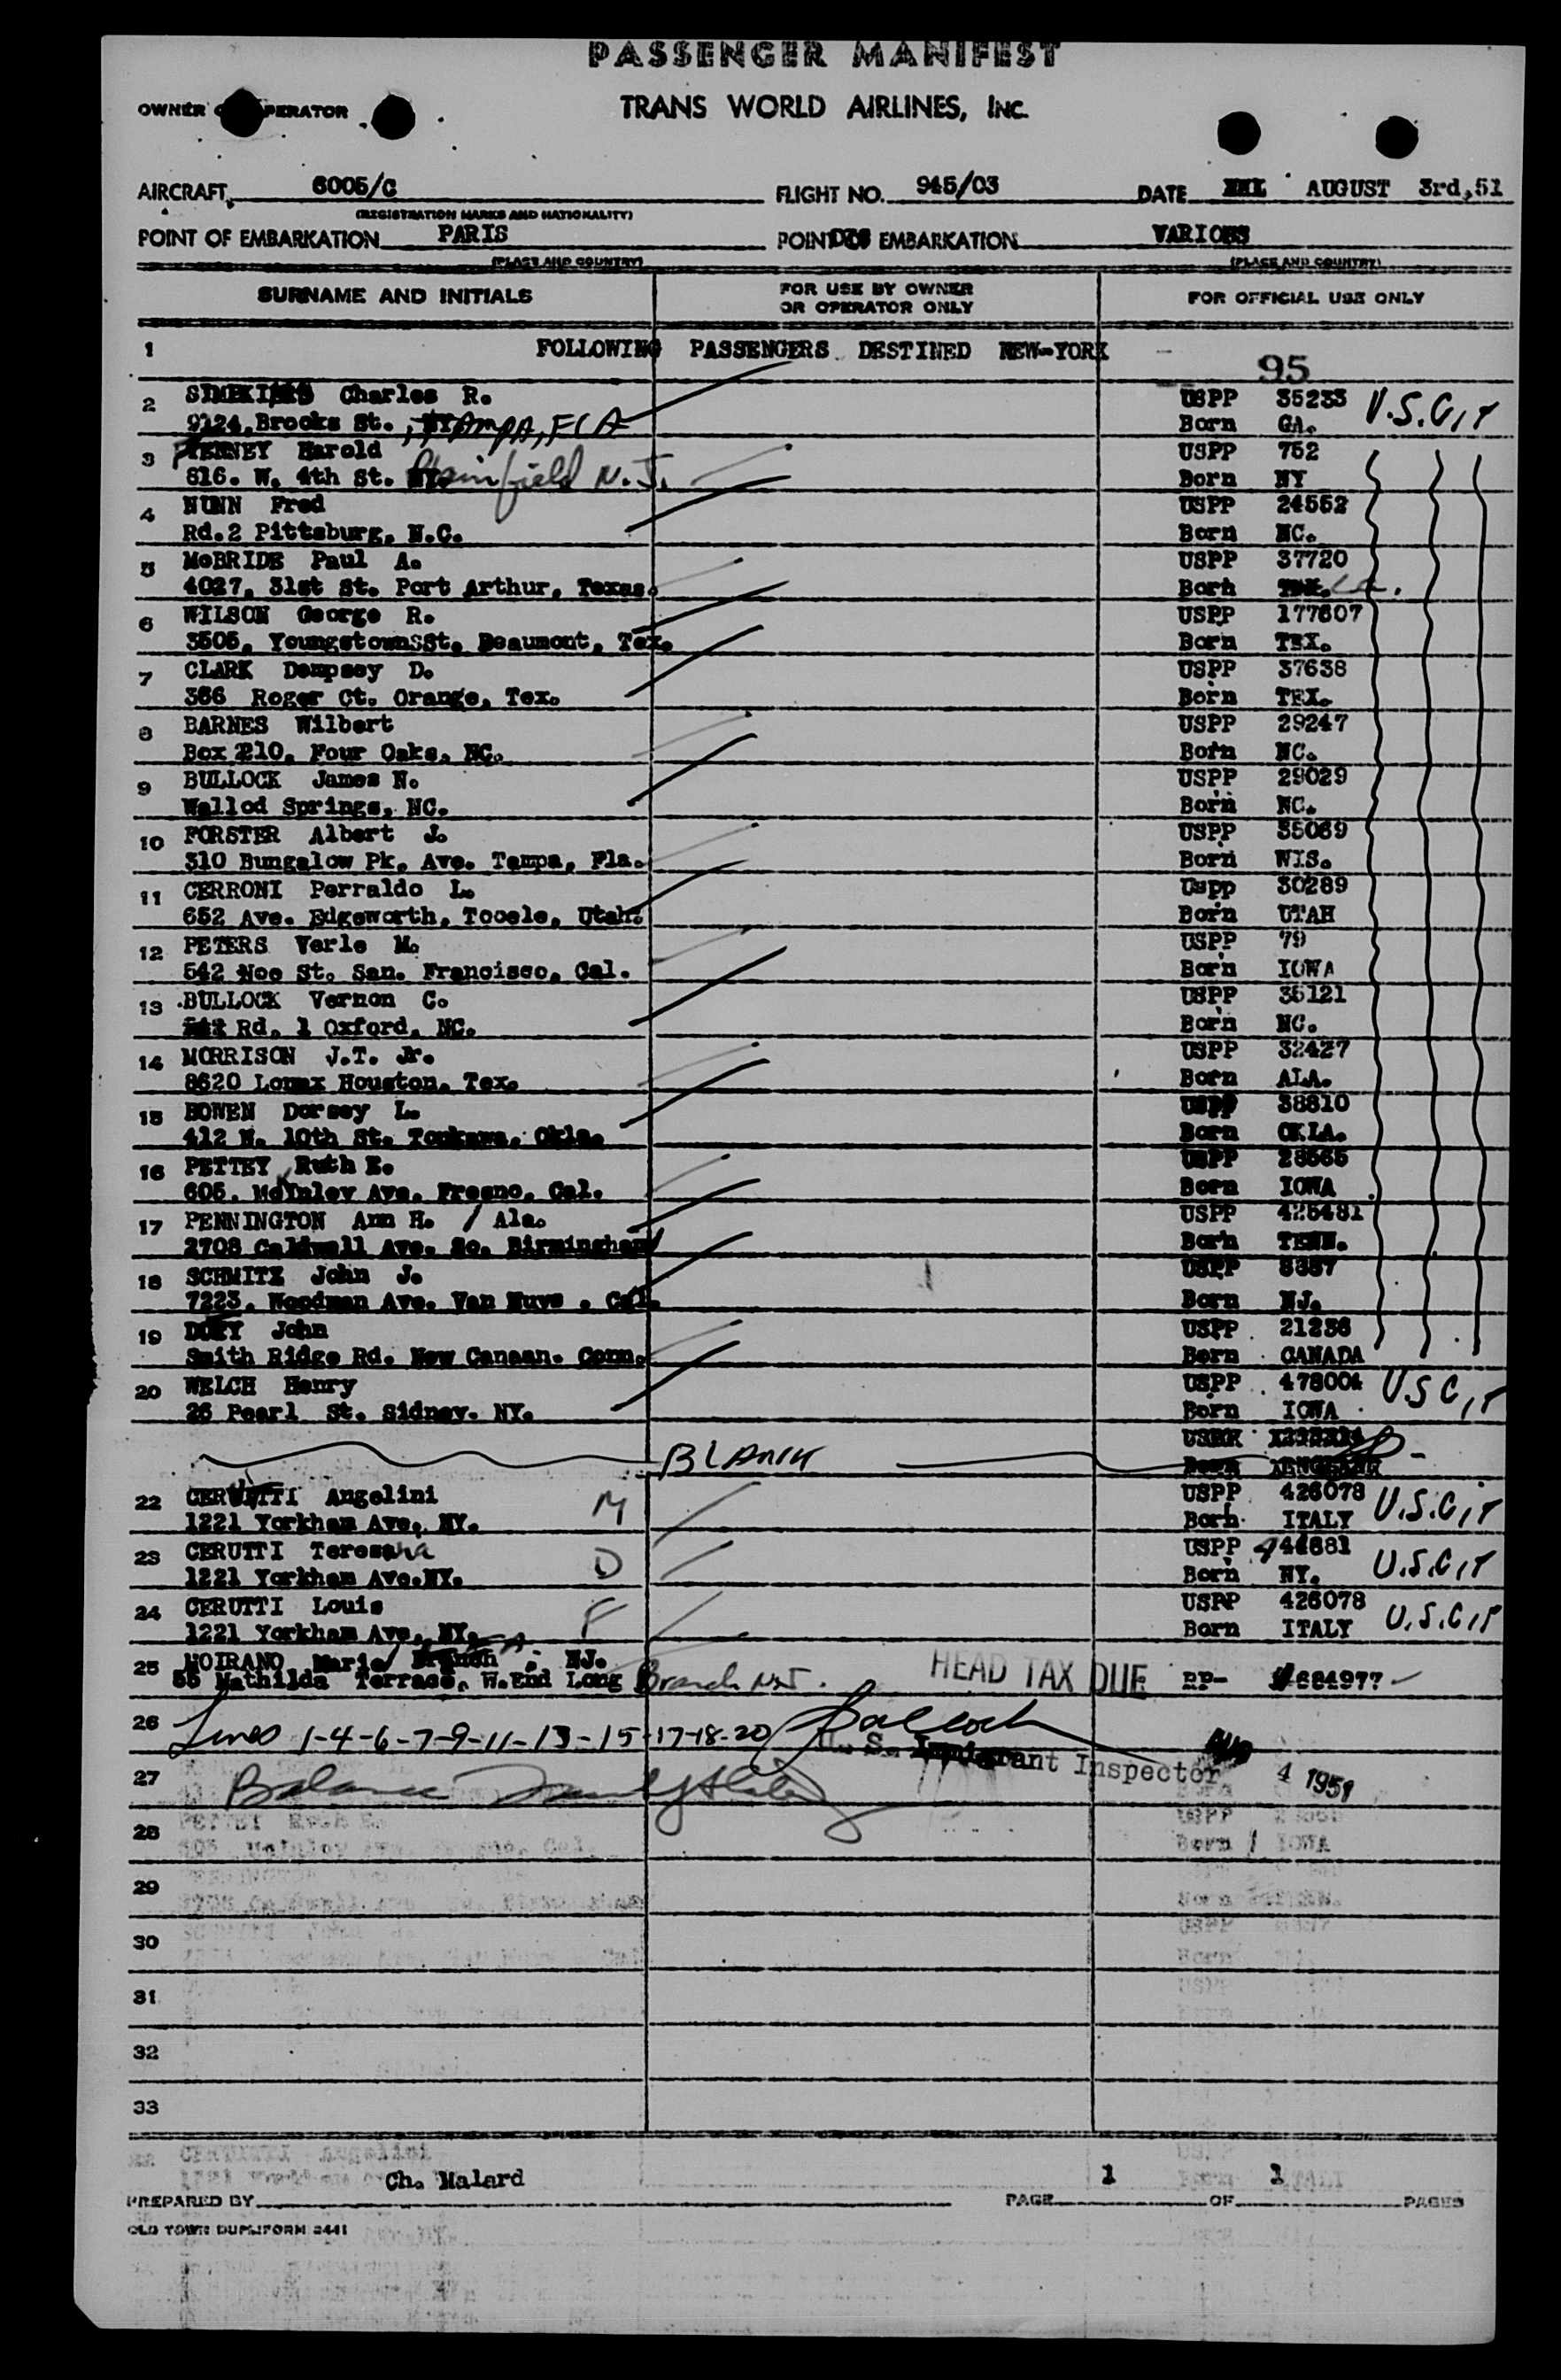 PASSENGER MANIFEST
OWNER OPERATOR
TRANS WORLD AIRLINES, INC.
AIRCRAFT 6005/C FLIGHT NO. 945/03 DATE AUGUST 3rd,51
(REGISTRATION MARKS AND NATIONALITY)
POINT OF EMBARKATION PARIS POINT DIS EMBARKATION VARIOUS
(PLACE AND COUNTRY) (PLACE AND COUNTRY)
SURNAME AND INITIALS FOR USE BY OWNER OR OPERATOR ONLY FOR OFFICIAL USE ONLY
1 FOLLOWING PASSENGERS DESTINED NEW-YORK
95
2 Charles R. USPP 35233 U.S.Cit
9124, Brooks St., Tampa, FLA Born GA.
3 Harold USPP 752
816. W. 4th St. Plainfield N.J. Born NY
4 NUNN Fred USPP 24552
Rd.2 Pittsburg, N.C. Born NC.
5 McBRIDE Paul A. USPP 37720
4027, 31st St. Port Arthur, Texas. Born La.
6 WILSON George R. USPP 177607
3505, YoungstownSSt. Beaumont, Tex. Born TEX.
7 CLARK Dempsey D. USPP 37638
366 Roger Ct. Orange, Tex. Born TEX.
8 BARNES Wilbert USPP 29247
Box 210, Four Oaks, NC. Born NC.
9 BULLOCK James N. USPP 29029
Walled Springs, NC. Born NC.
10 FORSTER Albert J. USPP 35069
310 Bungalow Pk, Ave. Tampa, Fla. Born WIS.
11 CERRONI Perraldo L. Uspp 30289
652 Ave. Edgeworth, Tooele, Utah. Born UTAH
12 PETERS Verle M. USPP 79
542 Noe St. San. Francisco, Cal. Born IOWA
13 BULLOCK Vernon C. USPP 35121
Rd, 1 Oxford, NC. Born NC.
14 MORRISON J.T. Jr. USPP 32427
8620 Lomax Houston, Tex. Born ALA.
15 BOWEN Dorsey L. USPP 38810
412 N. 10th St. Tonkawa, Okla. Born OKLA.
16 PETTEY Ruth E. USPP 28565
605, McInley Ave. Fresno, Cal. Born IOWA
17 PENNINGTON Ann H. / Ala. USPP 425481
2708 Caldwell Ave. So. Birmingham/ Born TENN.
18 SCHMITZ John J. USPP 8357
7223, Woodman Ave. Van Nuys . Cal. Born NJ.
19 John USPP 21236
Smith Ridge Rd. New Canaan. Conn. Born CANADA
20 WELCH Henry USPP 478004 U.S Cit
26 Pearl St. Sidney. NY. Born IOWA
BLANK
22 CERUTTI Angelini M USPP 426078 U.S.Cit
1221 Yorkham Ave, NY. Born ITALY
23 CERUTTI Teresa D USPP 444681 U.S.Cit
1221 Yorkham Ave.NY. Born NY.
24 CERUTTI Louis F USPP 426078 U.S.Cit
1221 Yorkham Ave, NY. Born ITALY
25 NOIRANO Marie NJ.
55 Mathilda Terrace, W.End Long Branch N.J. HEAD TAX DUE RP- 684977
26 Lines 1-4-6-7-9-11-13-15-17-18-20
U. S. Immigrant Inspector
27 Balance AUG 4 1951
28
29
30
31
32
33
PREPARED BY Ch. Malard PAGE 1 OF 1 PAGES
OLD TOWN DUPLIFORM 2441